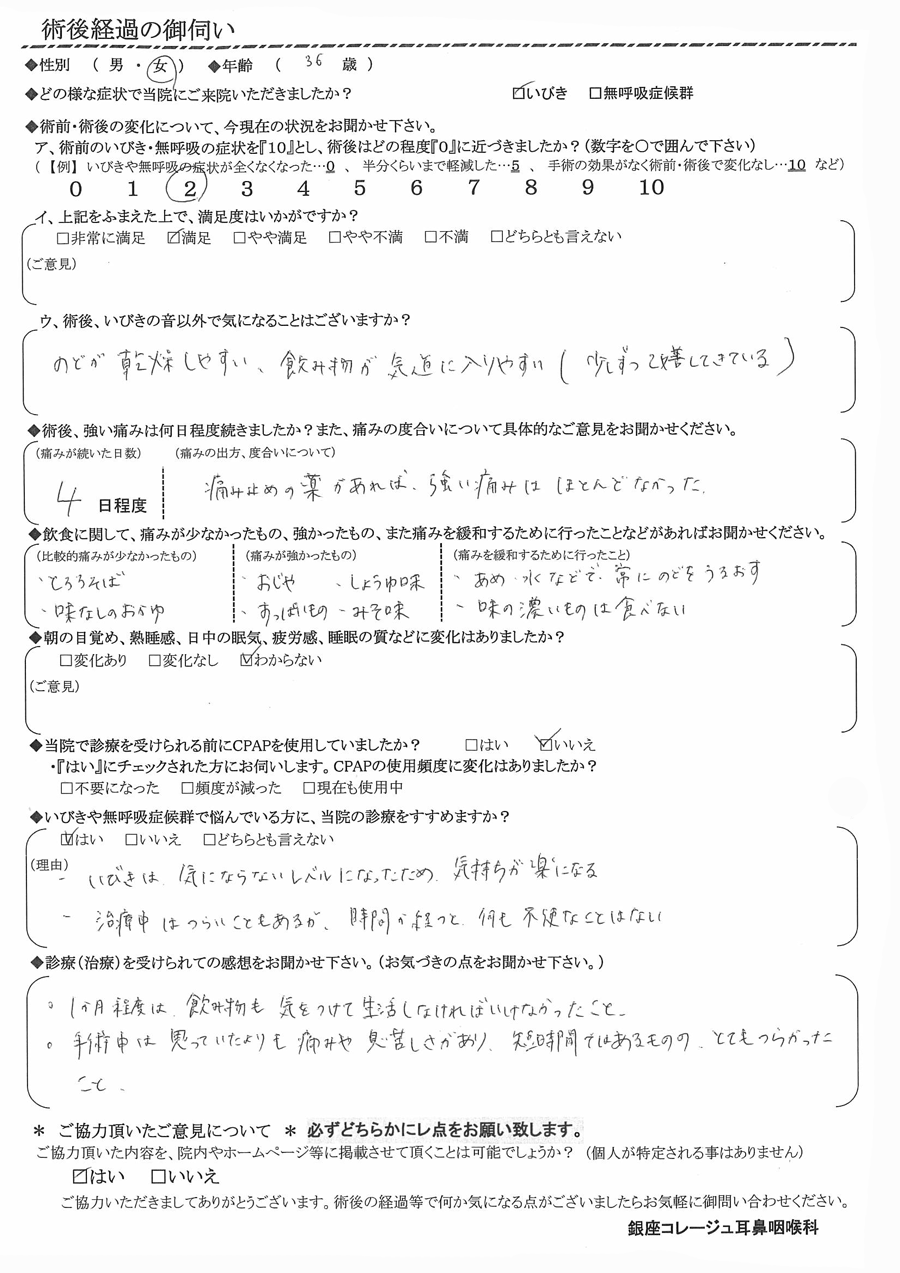 術後経過の御伺い
◆性別 ( 男 ・ 女 ) ◆年齢 ( 36 歳 )
◆どの様な症状で当院にご来院いただきましたか? ☑いびき □無呼吸症候群
◆術前・術後の変化について、今現在の状況をお聞かせ下さい。
ア、術前のいびき・無呼吸の症状を『10』とし、術後はどの程度『0』に近づきましたか?(数字を○で囲んで下さい)
(【例】いびきや無呼吸の症状が全くなくなった…0 、 半分くらいまで軽減した…5 、 手術の効果がなく術前・術後で変化なし…10 など)
0 1 2 3 4 5 6 7 8 9 10
イ、上記をふまえた上で、満足度はいかがですか?
□非常に満足 ☑満足 □やや満足 □やや不満 □不満 □どちらとも言えない
(ご意見)
ウ、術後、いびきの音以外で気になることはございますか?
のどが乾燥しやすい、飲み物が気道に入りやすい(少しずつ改善してきている)
◆術後、強い痛みは何日程度続きましたか?また、痛みの度合いについて具体的なご意見をお聞かせください。
(痛みが続いた日数) (痛みの出方、度合いについて)
4 日程度 痛み止めの薬があれば、強い痛みは ほとんどなかった。
◆飲食に関して、痛みが少なかったもの、強かったもの、また痛みを緩和するために行ったことなどがあればお聞かせください。
(比較的痛みが少なかったもの) (痛みが強かったもの) (痛みを緩和するために行ったこと)
・とろろそば ・おじや ・しょうゆ味 ・あめ・水などで、常にのどをうるおす
・味なしのおかゆ ・すっぱいもの ・みそ味 ・味の濃いものは食べない
◆朝の目覚め、熟睡感、日中の眠気、疲労感、睡眠の質などに変化はありましたか?
□変化あり □変化なし ☑わからない
(ご意見)
◆当院で診療を受けられる前にCPAPを使用していましたか? □はい ☑いいえ
・『はい』にチェックされた方にお伺いします。CPAPの使用頻度に変化はありましたか?
□不要になった □頻度が減った □現在も使用中
◆いびきや無呼吸症候群で悩んでいる方に、当院の診療をすすめますか?
☑はい □いいえ □どちらとも言えない
(理由)
- いびきは、気にならないレベルになったため、気持ちが楽になる
- 治療中はつらいこともあるが、時間が経つと、何も不便なことはない
◆診療(治療)を受けられての感想をお聞かせ下さい。(お気づきの点をお聞かせ下さい。)
○ 1か月程度は、飲み物も気をつけて生活しなければいけなかったこと。
○ 手術中は思っていたよりも痛みや息苦しさがあり、短時間ではあるものの、とてもつらかった
こと。
* ご協力頂いたご意見について * 必ずどちらかにレ点をお願い致します。
ご協力頂いた内容を、院内やホームページ等に掲載させて頂くことは可能でしょうか? (個人が特定される事はありません)
☑はい □いいえ
ご協力いただきましてありがとうございます。術後の経過等で何か気になる点がございましたらお気軽に御問い合わせください。
銀座コレージュ耳鼻咽喉科